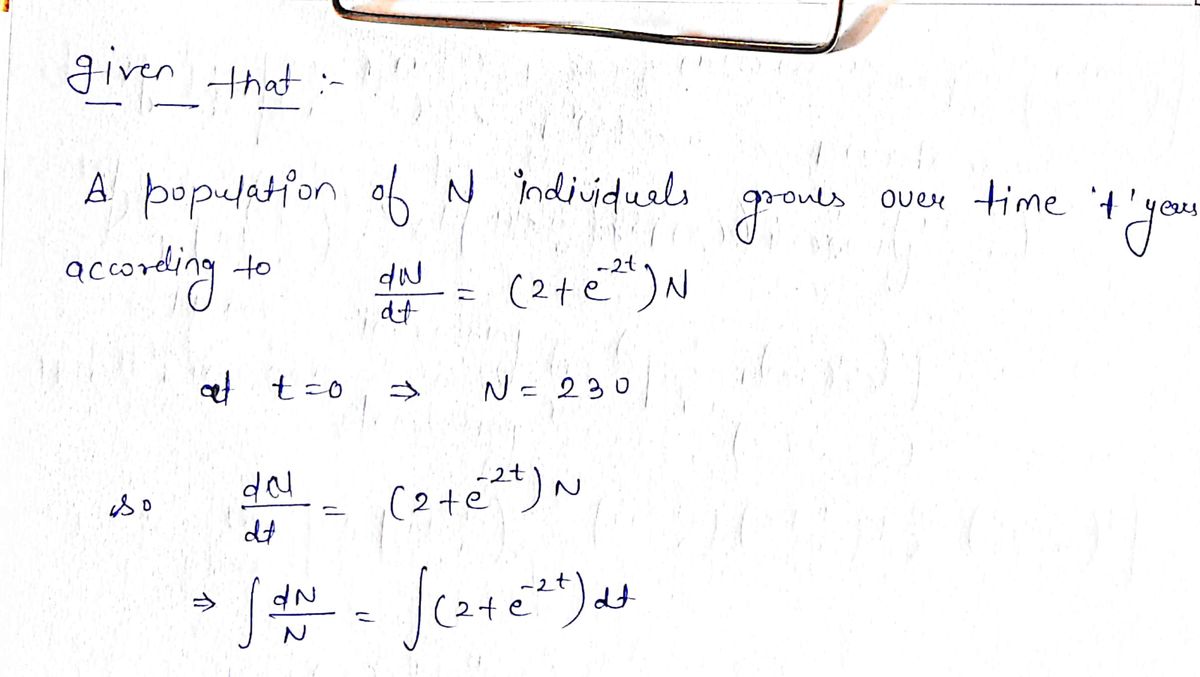 given that :-
A population of N individuals grows over time 't' years
according to dN/dt = (2+e^-2t)N
at t=0 ⇒ N = 230
so dN/dt = (2+e^-2t)N
⇒ ∫ dN/N = ∫(2+e^-2t)dt